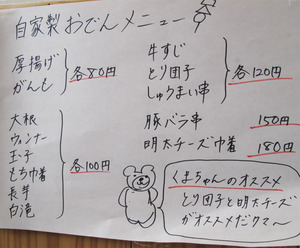 自家製おでんメニュー
厚揚げ
がんも
各80円
大根
ウィンナー
玉子
もち巾着
長芋
白滝
各100円
牛すじ
とり団子
しゅうまい串
各120円
豚バラ串 150円
明太チーズ巾着 180円
くまちゃんのオススメ
とり団子と明太チーズ
がオススメだクマ〜